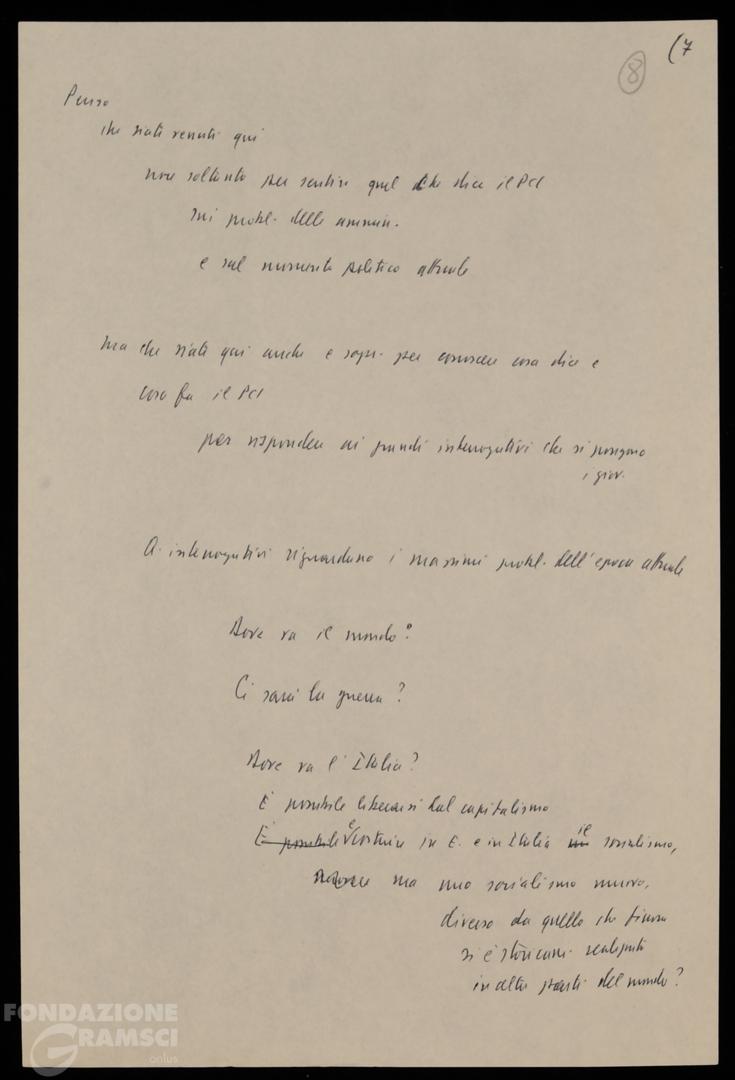 (7
8
Penso
che siate venuti qui
non soltanto per sentire quel che dice il PCI
sui probl. delle ammin.
e sul momento politico attuale
ma che siate qui anche e sopr. per conoscere cosa dice e
cosa fa il PCI
per rispondere ai grandi interrogativi che si pongono
i giov.
interrogativi riguardano i massimi probl. dell'epoca attuale
Dove va il mondo?
Ci sarà la guerra?
Dove va l'Italia?
È possibile liberarsi dal capitalismo
È possibile e costruire in E. e in Italia un il socialismo,
ma uno socialismo nuovo,
diverso da quello che finora
si è storicam. realizzato
in altre parti del mondo?
FONDAZIONE
GRAMSCI
onlus